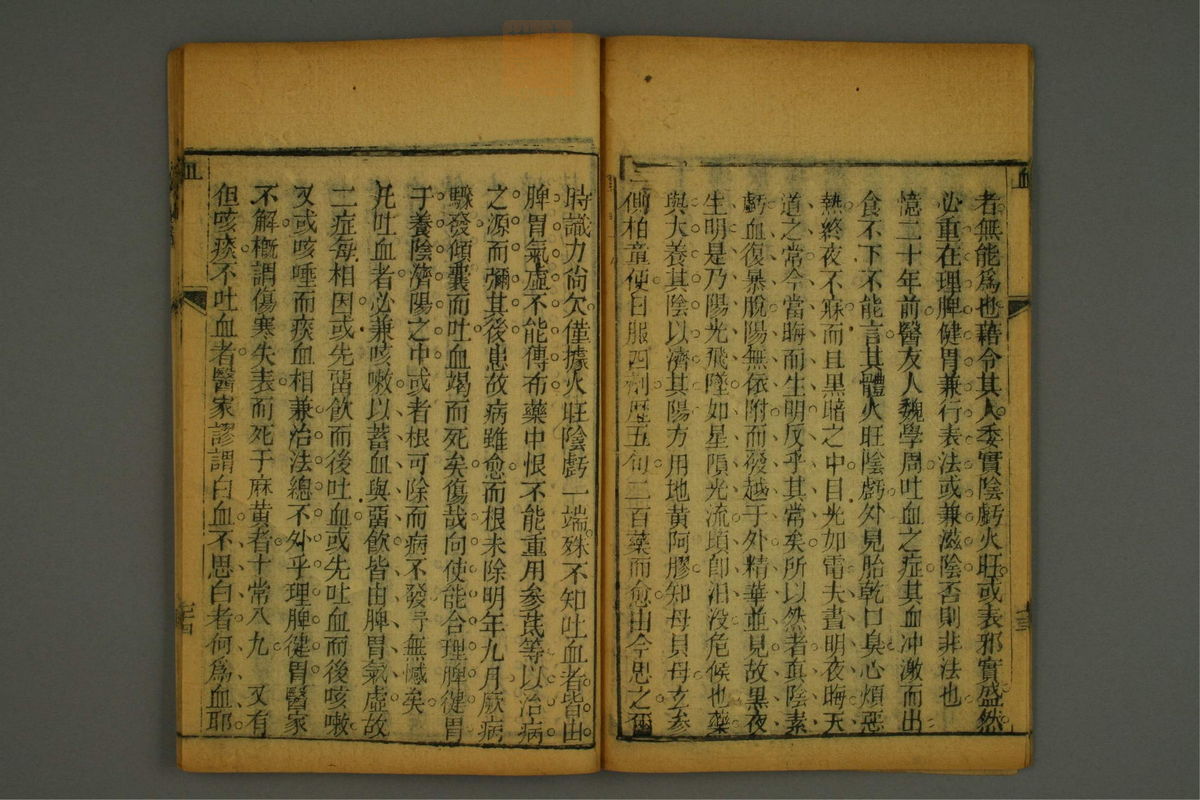 者無能爲也藉令其人委實陰虧火旺或表邪實盛然
必重在理脾健胃兼行表法或兼滋陰否則非法也
憶二十年前醫友人魏學周吐血之症其血冲激而出
食不下不能言其體火旺陰虧外見胎乾口臭心煩惡
熱終夜不寐而且黑暗之中目光如電夫晝明夜晦天
道之常今當晦而生明反乎其常矣所以然者眞陰素
虧血復暴脫陽無依附而發越于外精華並見故黑夜
生明是乃陽光飛墜如星隕光流頃卽汨没危候也藥
與大養其陰以濟其陽方用地黄阿膠知母貝母玄参
側柏童便日服四劑歷五旬二百藥而愈由今思之爾
時識力尙欠僅據火旺陰虧一端殊不知吐血者皆由
脾胃氣虚不能傳布藥中恨不能重用参茋等以治病
之源而彌其後患故病雖愈而根未除明年九月厥病
驟發傾囊而吐血竭而死矣傷哉向使能合理脾健胃
于養陰濟陽之中或者根可除而病不發吾無憾矣
凡吐血者必兼咳嗽以蓄血與畱飮皆由脾胃氣虛故
二症每相因或先畱飮而後吐血或先吐血而後咳嗽
又或咳唾而痰血相兼治法總不外乎理脾健胃醫家
不解槪謂傷寒失表而死于麻黄者十常八九 又有
但咳痰不吐血者醫家謬謂白血不思白者何爲血耶
血
血